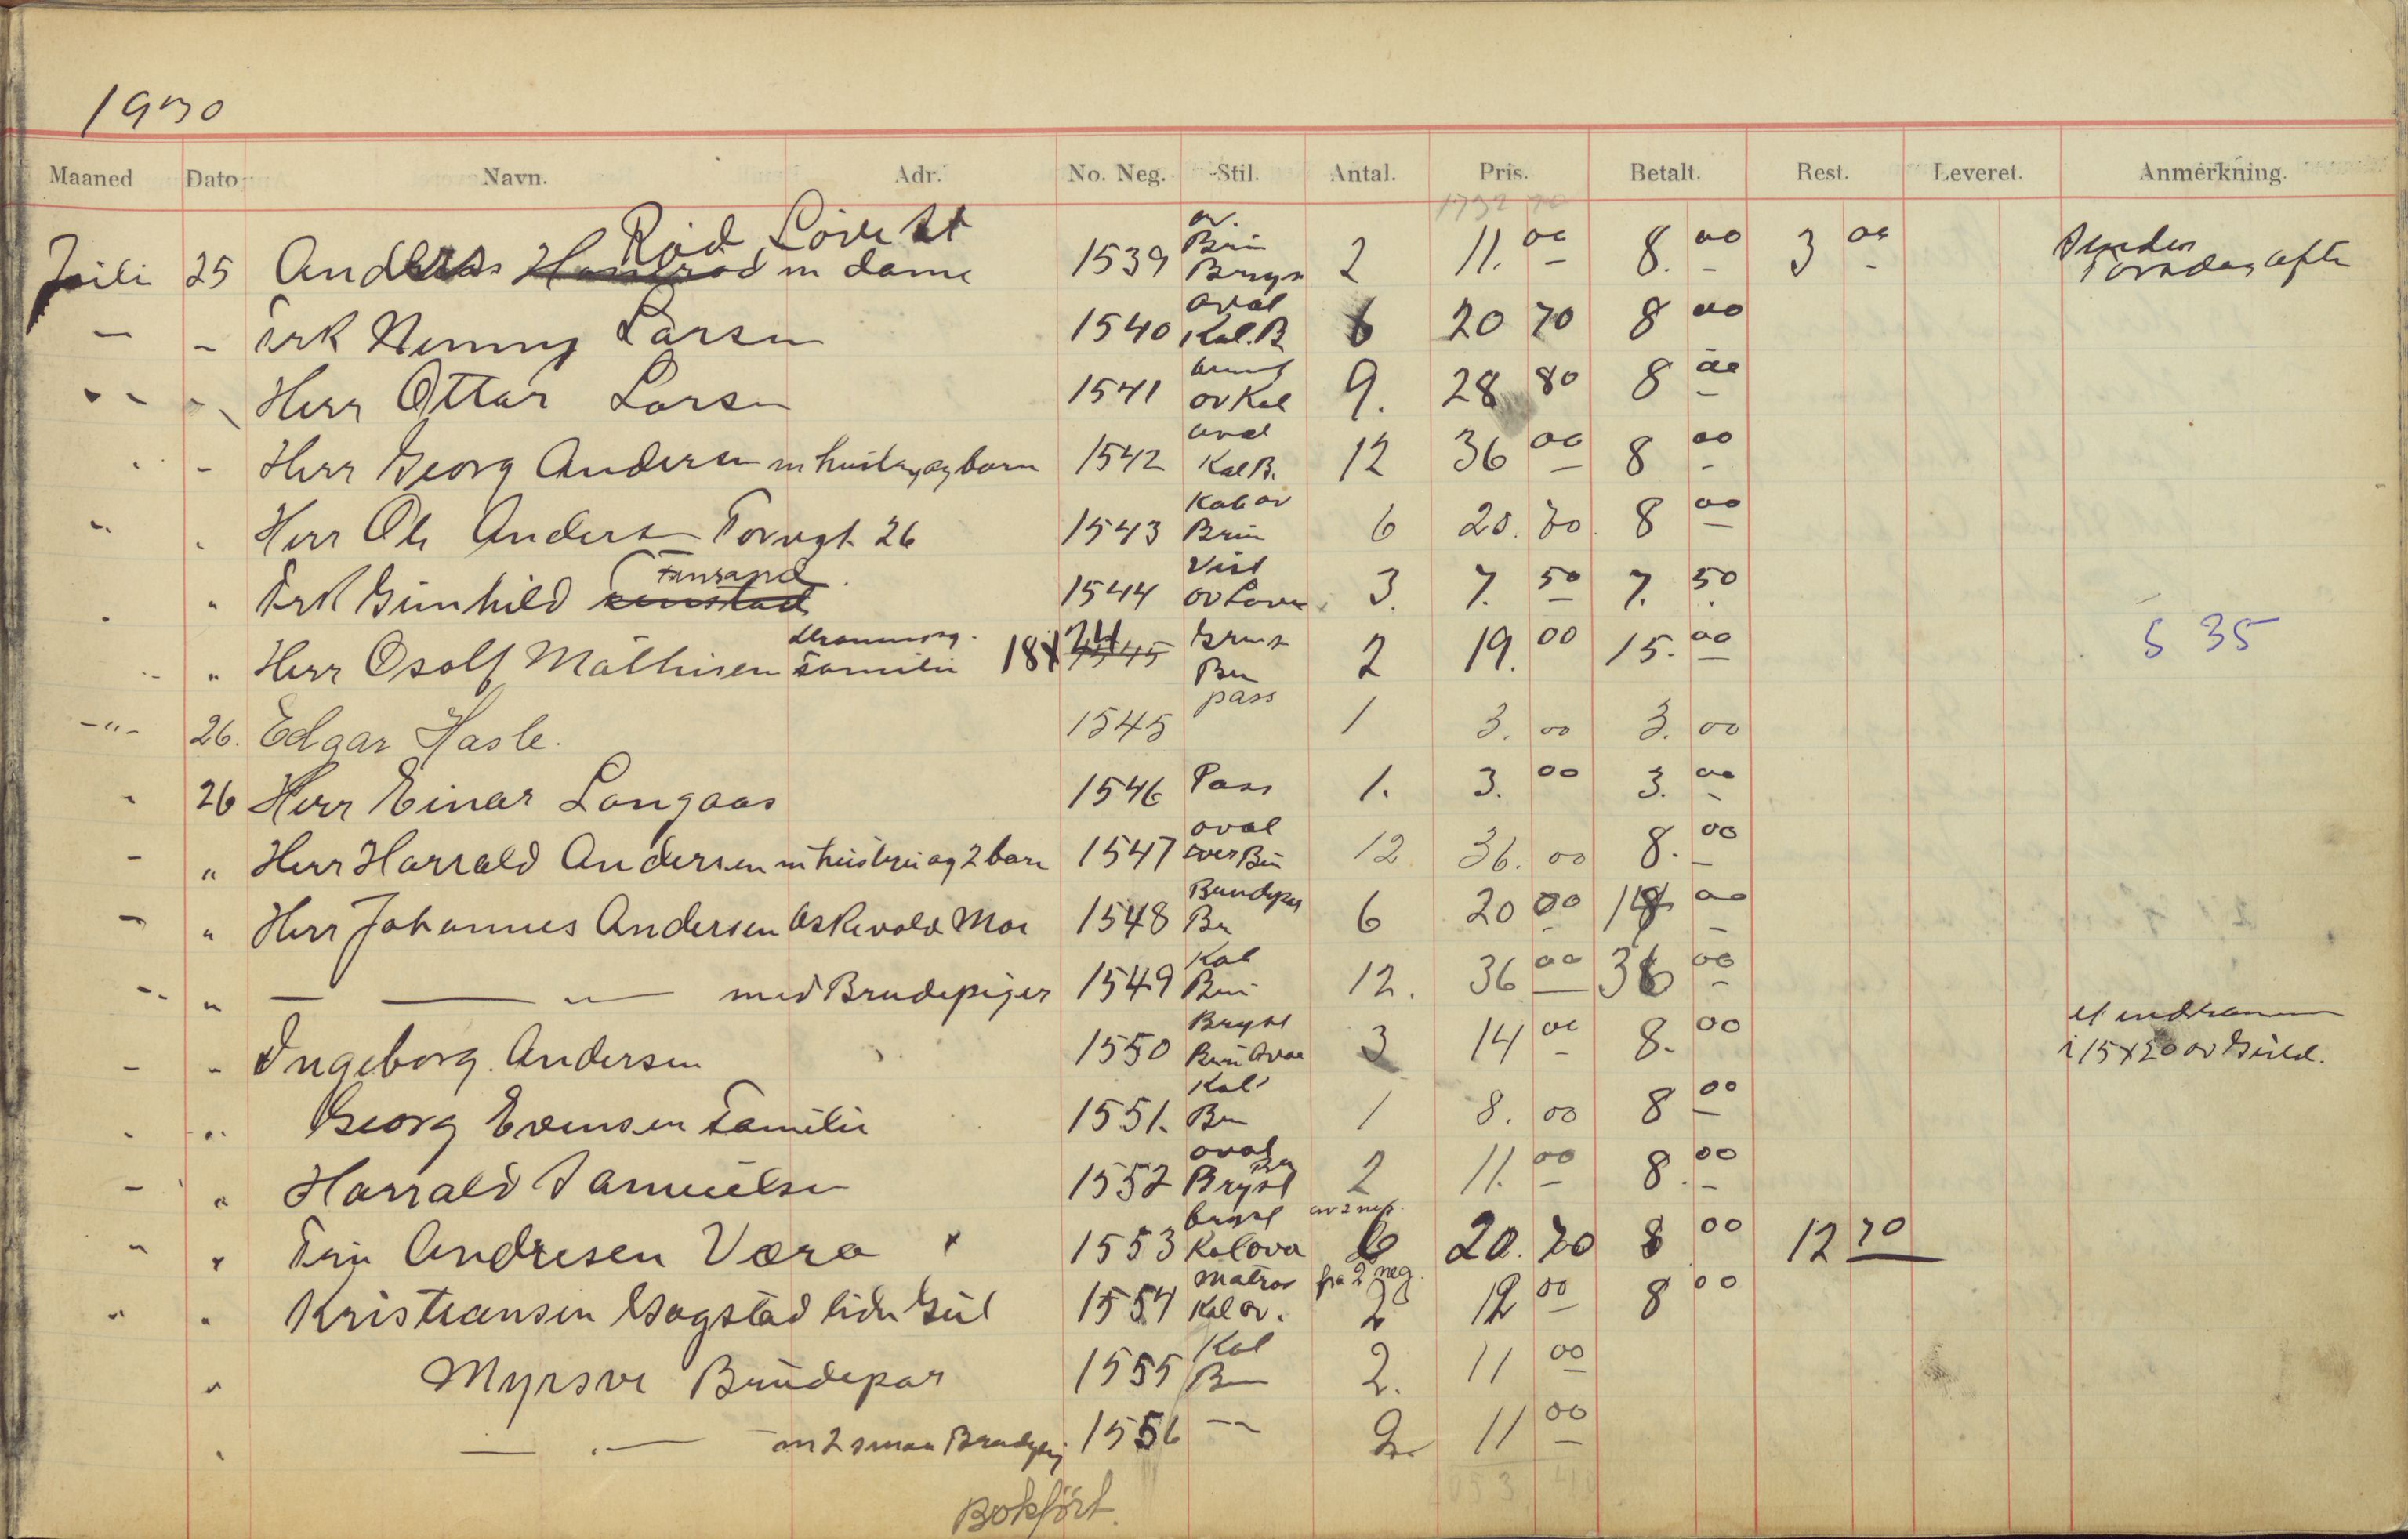 1930
Maaned Dato Navn. Adr. No. Neg. Stil. Antal. Pris. Betalt. Rest. Leveret. Anmerkning.
1732 70
Juli 25 Anders Rød Løvest m dame 1539 ov. Brun Bryst 2 11.00 8.00 3 00 Sendes Torsdag aften
— – Frk Nenny Larsen 1540 oval Kal.B 6 20 70 8 00
Herr Ottar Larsen 1541 ov Kal 9. 28 80 8 00
" – Herr Georg Andersen m hustru og barn 1542 oval Kal B. 12 36 00 8 00
" " Herr Ole Andersen Torvgt 26 1543 Kab ov Brun 6 20.70 8 00
" " Frk Gunhild 1544 Visit ov 3. 7.50 7.50
" " Herr Osolf Mathisen Familie 18x24 1545 Bru 2 19.00 15.00 S 35
–"– 26. Edgar Hasle. 1545 pass 1 3.00 3.00
" 26 Herr Einar Langaas 1546 Pass 1. 3.00 3.00
– " Herr Harrald Andersen m hustru og 2 barn 1547 oval 12 36.00 8.00
– " Herr Johannes Andersen Askevold Moe 1548 Brudepar Br 6 20 00 00
" " — — " — med Brudepiger 1549 Kab Brun 12. 36 00 36 00
– – Ingeborg. Andersen 1550 Bryst Brun Oval 3 14 00 8.00 i 15x20 ov Guld.
" " Georg Evensen Familie 1551. Kab Brun 1 8.00 8 00
– " Harrald Samuelsen 1552 oval Bru Bryst 2 11.00 8.00
" " Fru Andresen Væra x 1553 bryst Kal ova av 2 neg. 6 20.70 8 00 12 70
" " Kristiansen Gogstad lidn Gul 1554 Matros Kal ov. fra 2 neg. 2 12 00 8 00
" Myrsve Brudepar 1555 Kal B 2. 11 00
" — " — m 2 smaa Brudepig 1556 — 2. 11 00
Bokført.